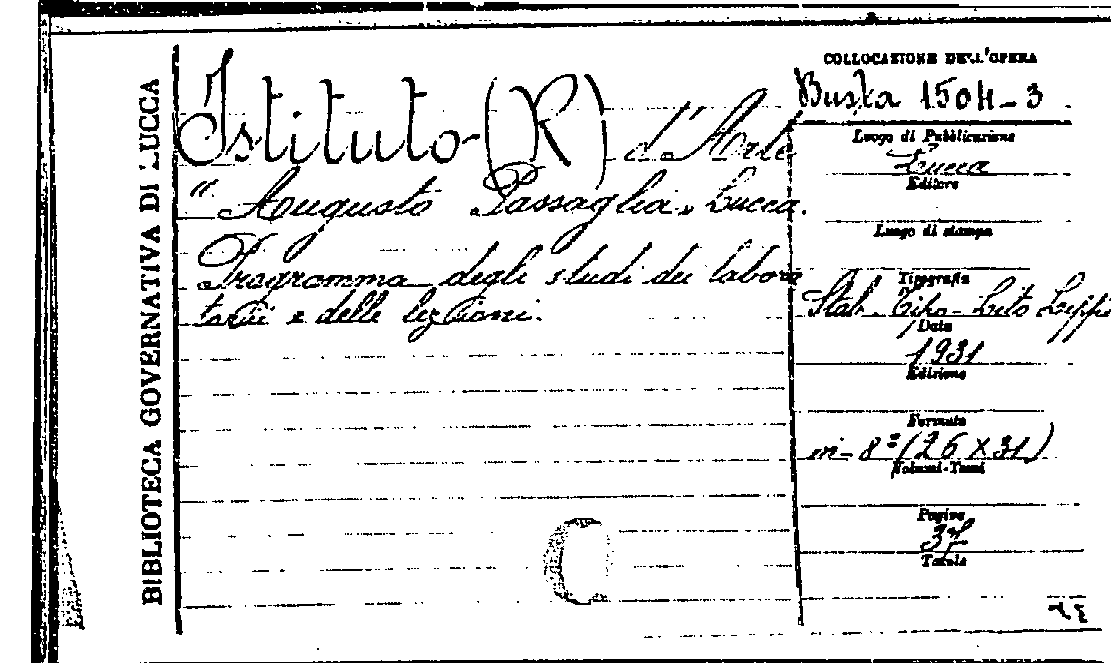 BIBLIOTECA GOVERNATIVA DI LUCCA
Istituto (R) d'Arte
"Augusto Passaglia" Lucca.
Programma degli studi dei labora
tori e delle lezioni.
COLLOCAZIONE DELL'OPERA
Busta 1504-3
Luogo di Pubblicazione
Lucca
Editore
Luogo di stampa
Tipografia
Stab. Tipo-Lito Lippi
Data
1931
Edizione
Formato
in-8º (26 X 31)
Volumi-Tomi
Pagine
37
Tavole